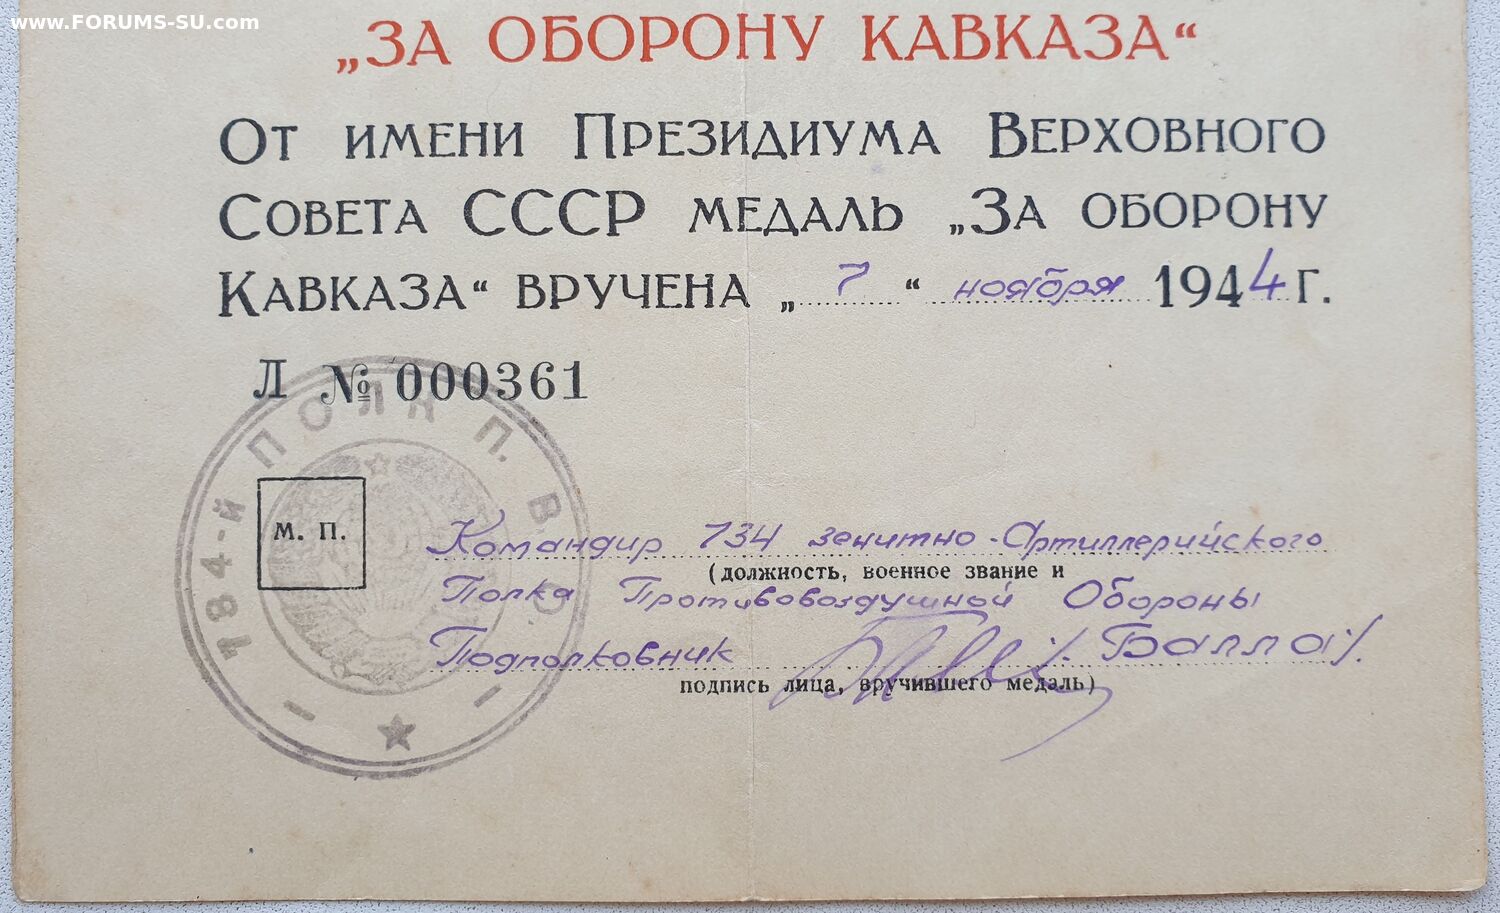 www.FORUMS-SU.com
„ЗА ОБОРОНУ КАВКАЗА“
От имени Президиума Верховного
Совета СССР медаль „За оборону
Кавказа“ вручена „7“ ноября 1944 г.
Л № 000361
784-й ПОЛК П. В. О.
М. П.
Командир 734 зенитно-Артиллерийского
(должность, военное звание и
Полка Противовоздушной Обороны
Подполковник /Балла/.
подпись лица, вручившего медаль)